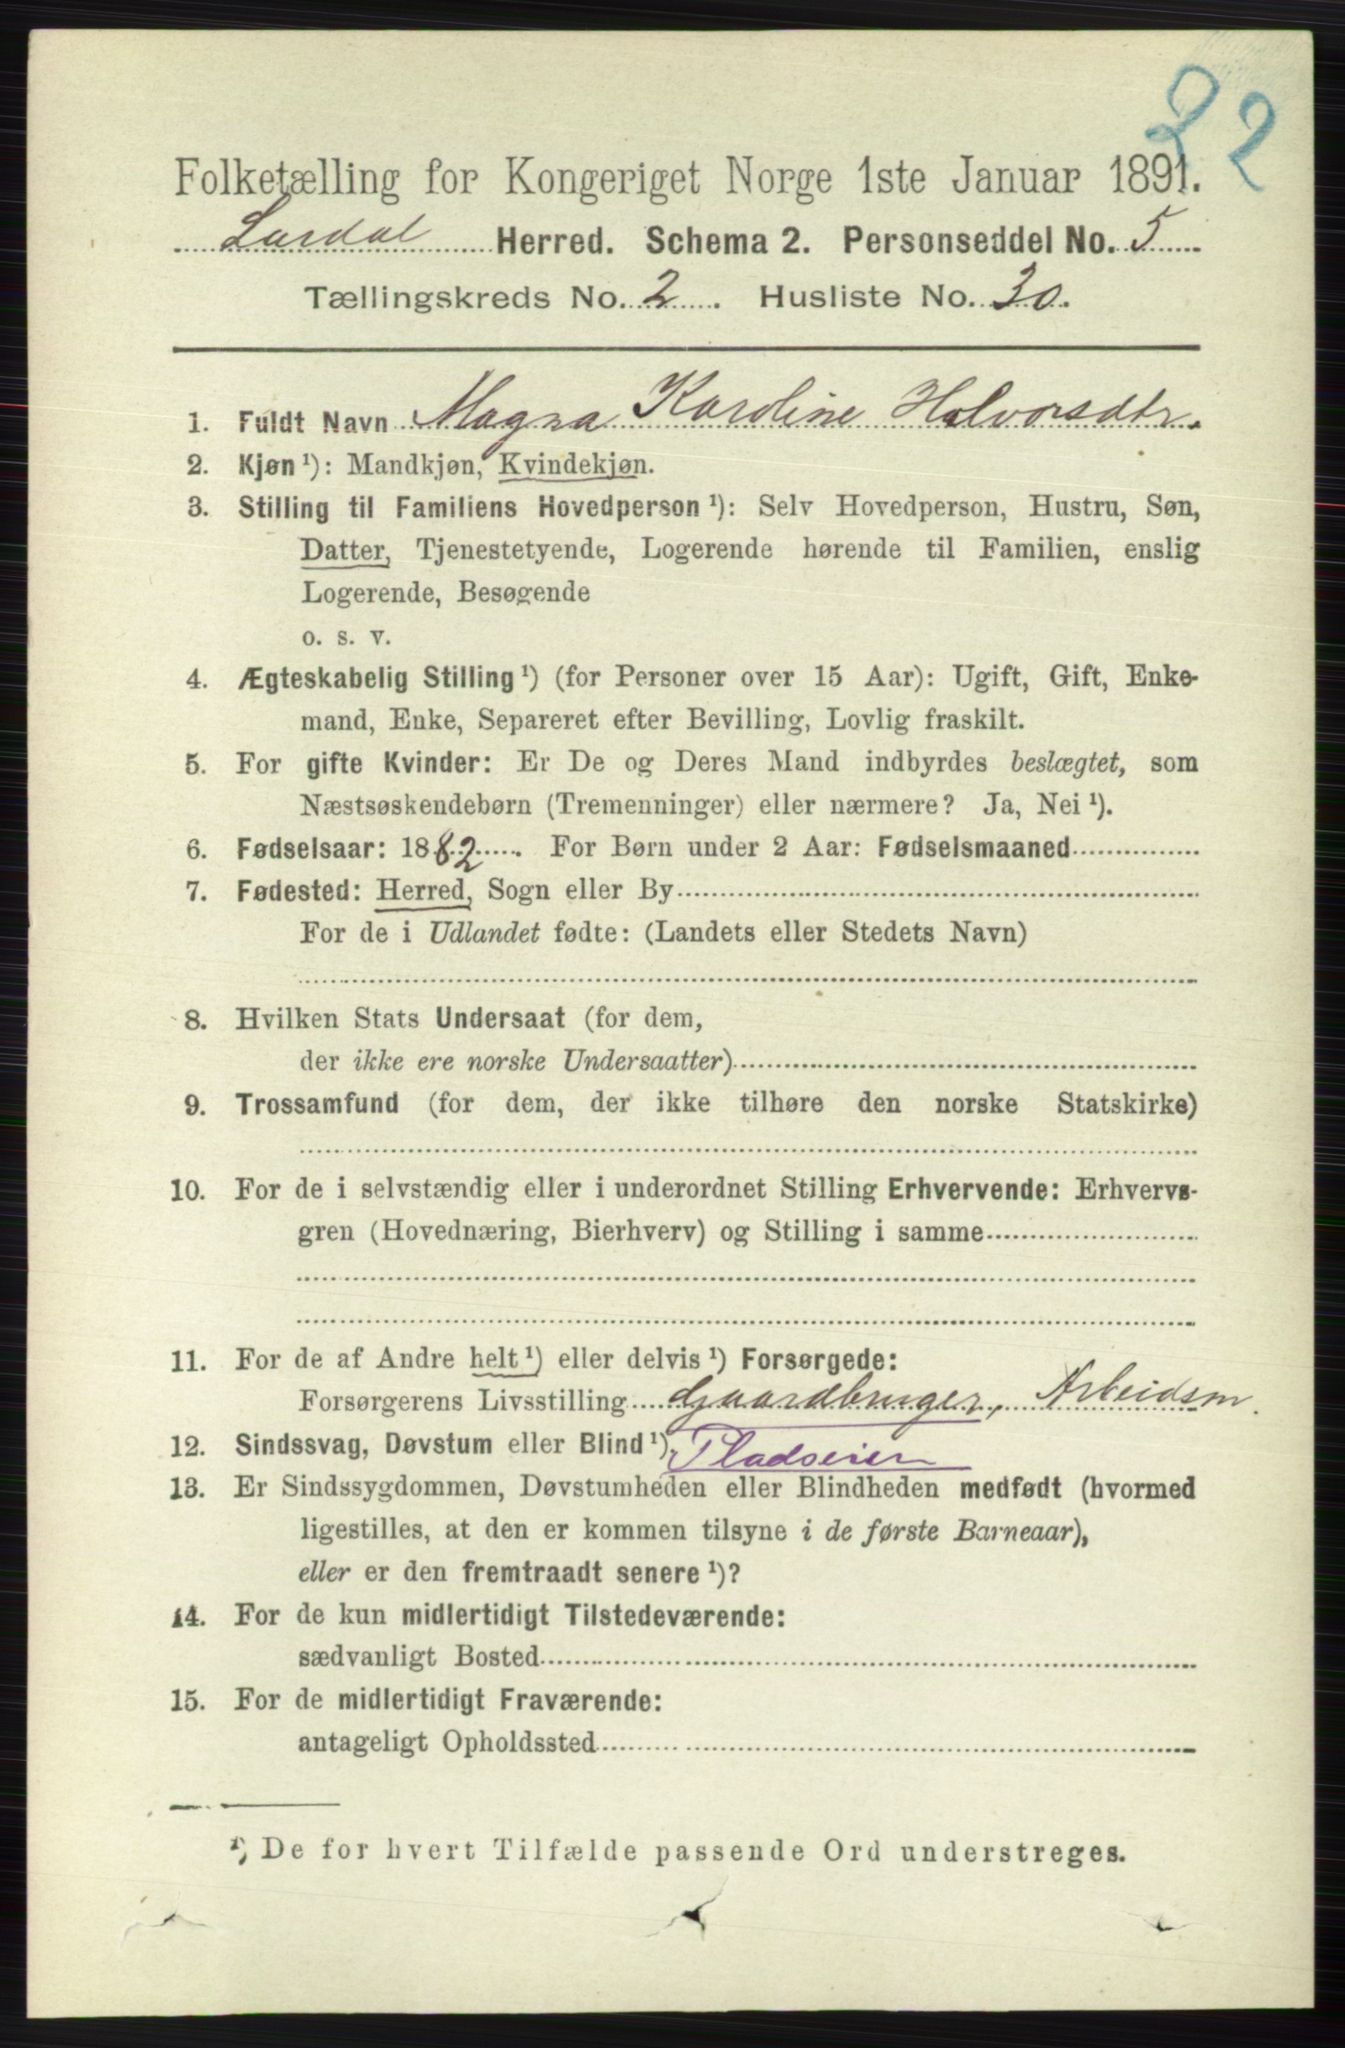 22
Folketælling for Kongeriget Norge 1ste Januar 1891.
Lardal Herred. Schema 2. Personseddel No. 5
Tællingskreds No. 2. Husliste No. 30.
1. Fuldt Navn Magna Karoline Halvorsdtr.
2. Kjøn ¹): Mandkjøn, Kvindekjøn.
3. Stilling til Familiens Hovedperson ¹): Selv Hovedperson, Hustru, Søn,
Datter, Tjenestetyende, Logerende hørende til Familien, enslig
Logerende, Besøgende
o. s. v.
4. Ægteskabelig Stilling ¹) (for Personer over 15 Aar): Ugift, Gift, Enke-
mand, Enke, Separeret efter Bevilling, Lovlig fraskilt.
5. For gifte Kvinder: Er De og Deres Mand indbyrdes beslægtet, som
Næstsøskendebørn (Tremenninger) eller nærmere? Ja, Nei ¹).
6. Fødselsaar: 1882. For Børn under 2 Aar: Fødselsmaaned
7. Fødested: Herred, Sogn eller By
For de i Udlandet fødte: (Landets eller Stedets Navn)
8. Hvilken Stats Undersaat (for dem,
der ikke ere norske Undersaatter)
9. Trossamfund (for dem, der ikke tilhøre den norske Statskirke)
10. For de i selvstændig eller i underordnet Stilling Erhvervende: Erhvervs-
gren (Hovednæring, Bierhverv) og Stilling i samme
11. For de af Andre helt ¹) eller delvis ¹) Forsørgede:
Forsørgerens Livsstilling Gaardbruger, Arbeidsm.
12. Sindssvag, Døvstum eller Blind ¹). Pladseier
13. Er Sindssygdommen, Døvstumheden eller Blindheden medfødt (hvormed
ligestilles, at den er kommen tilsyne i de første Barneaar),
eller er den fremtraadt senere ¹)?
14. For de kun midlertidigt Tilstedeværende:
sædvanligt Bosted
15. For de midlertidigt Fraværende:
antageligt Opholdssted
¹) De for hvert Tilfælde passende Ord understreges.